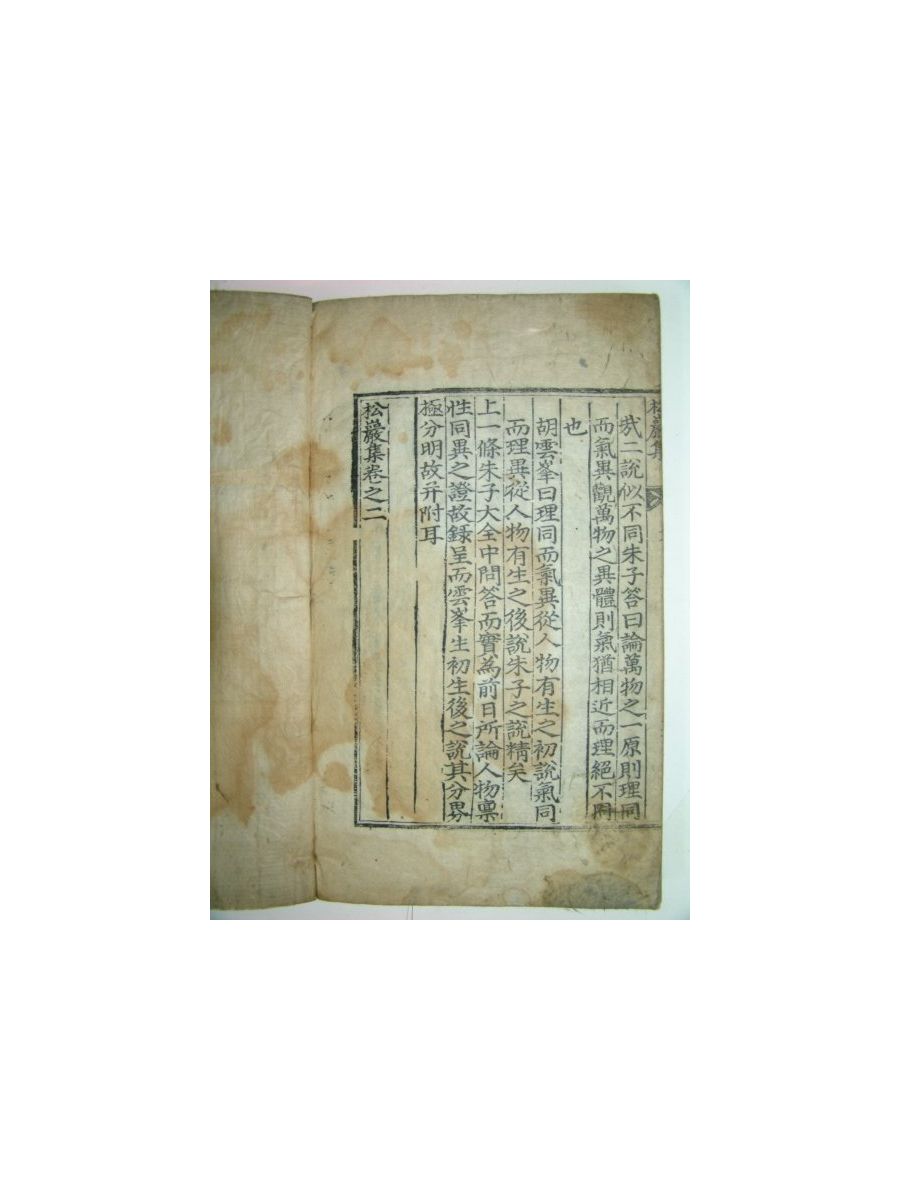 松巖集
哉二說似不同朱子答曰論萬物之一原則理同
而氣異觀萬物之異體則氣猶相近而理絕不同
也
胡雲峯曰理同而氣異從人物有生之初說氣同
而理異從人物有生之後說朱子之說精矣
上一條朱子大全中問答而實爲前日所論人物稟
性同異之證故錄呈而雲峯生初生後之說其分界
極分明故幷附耳
松巖集卷之二